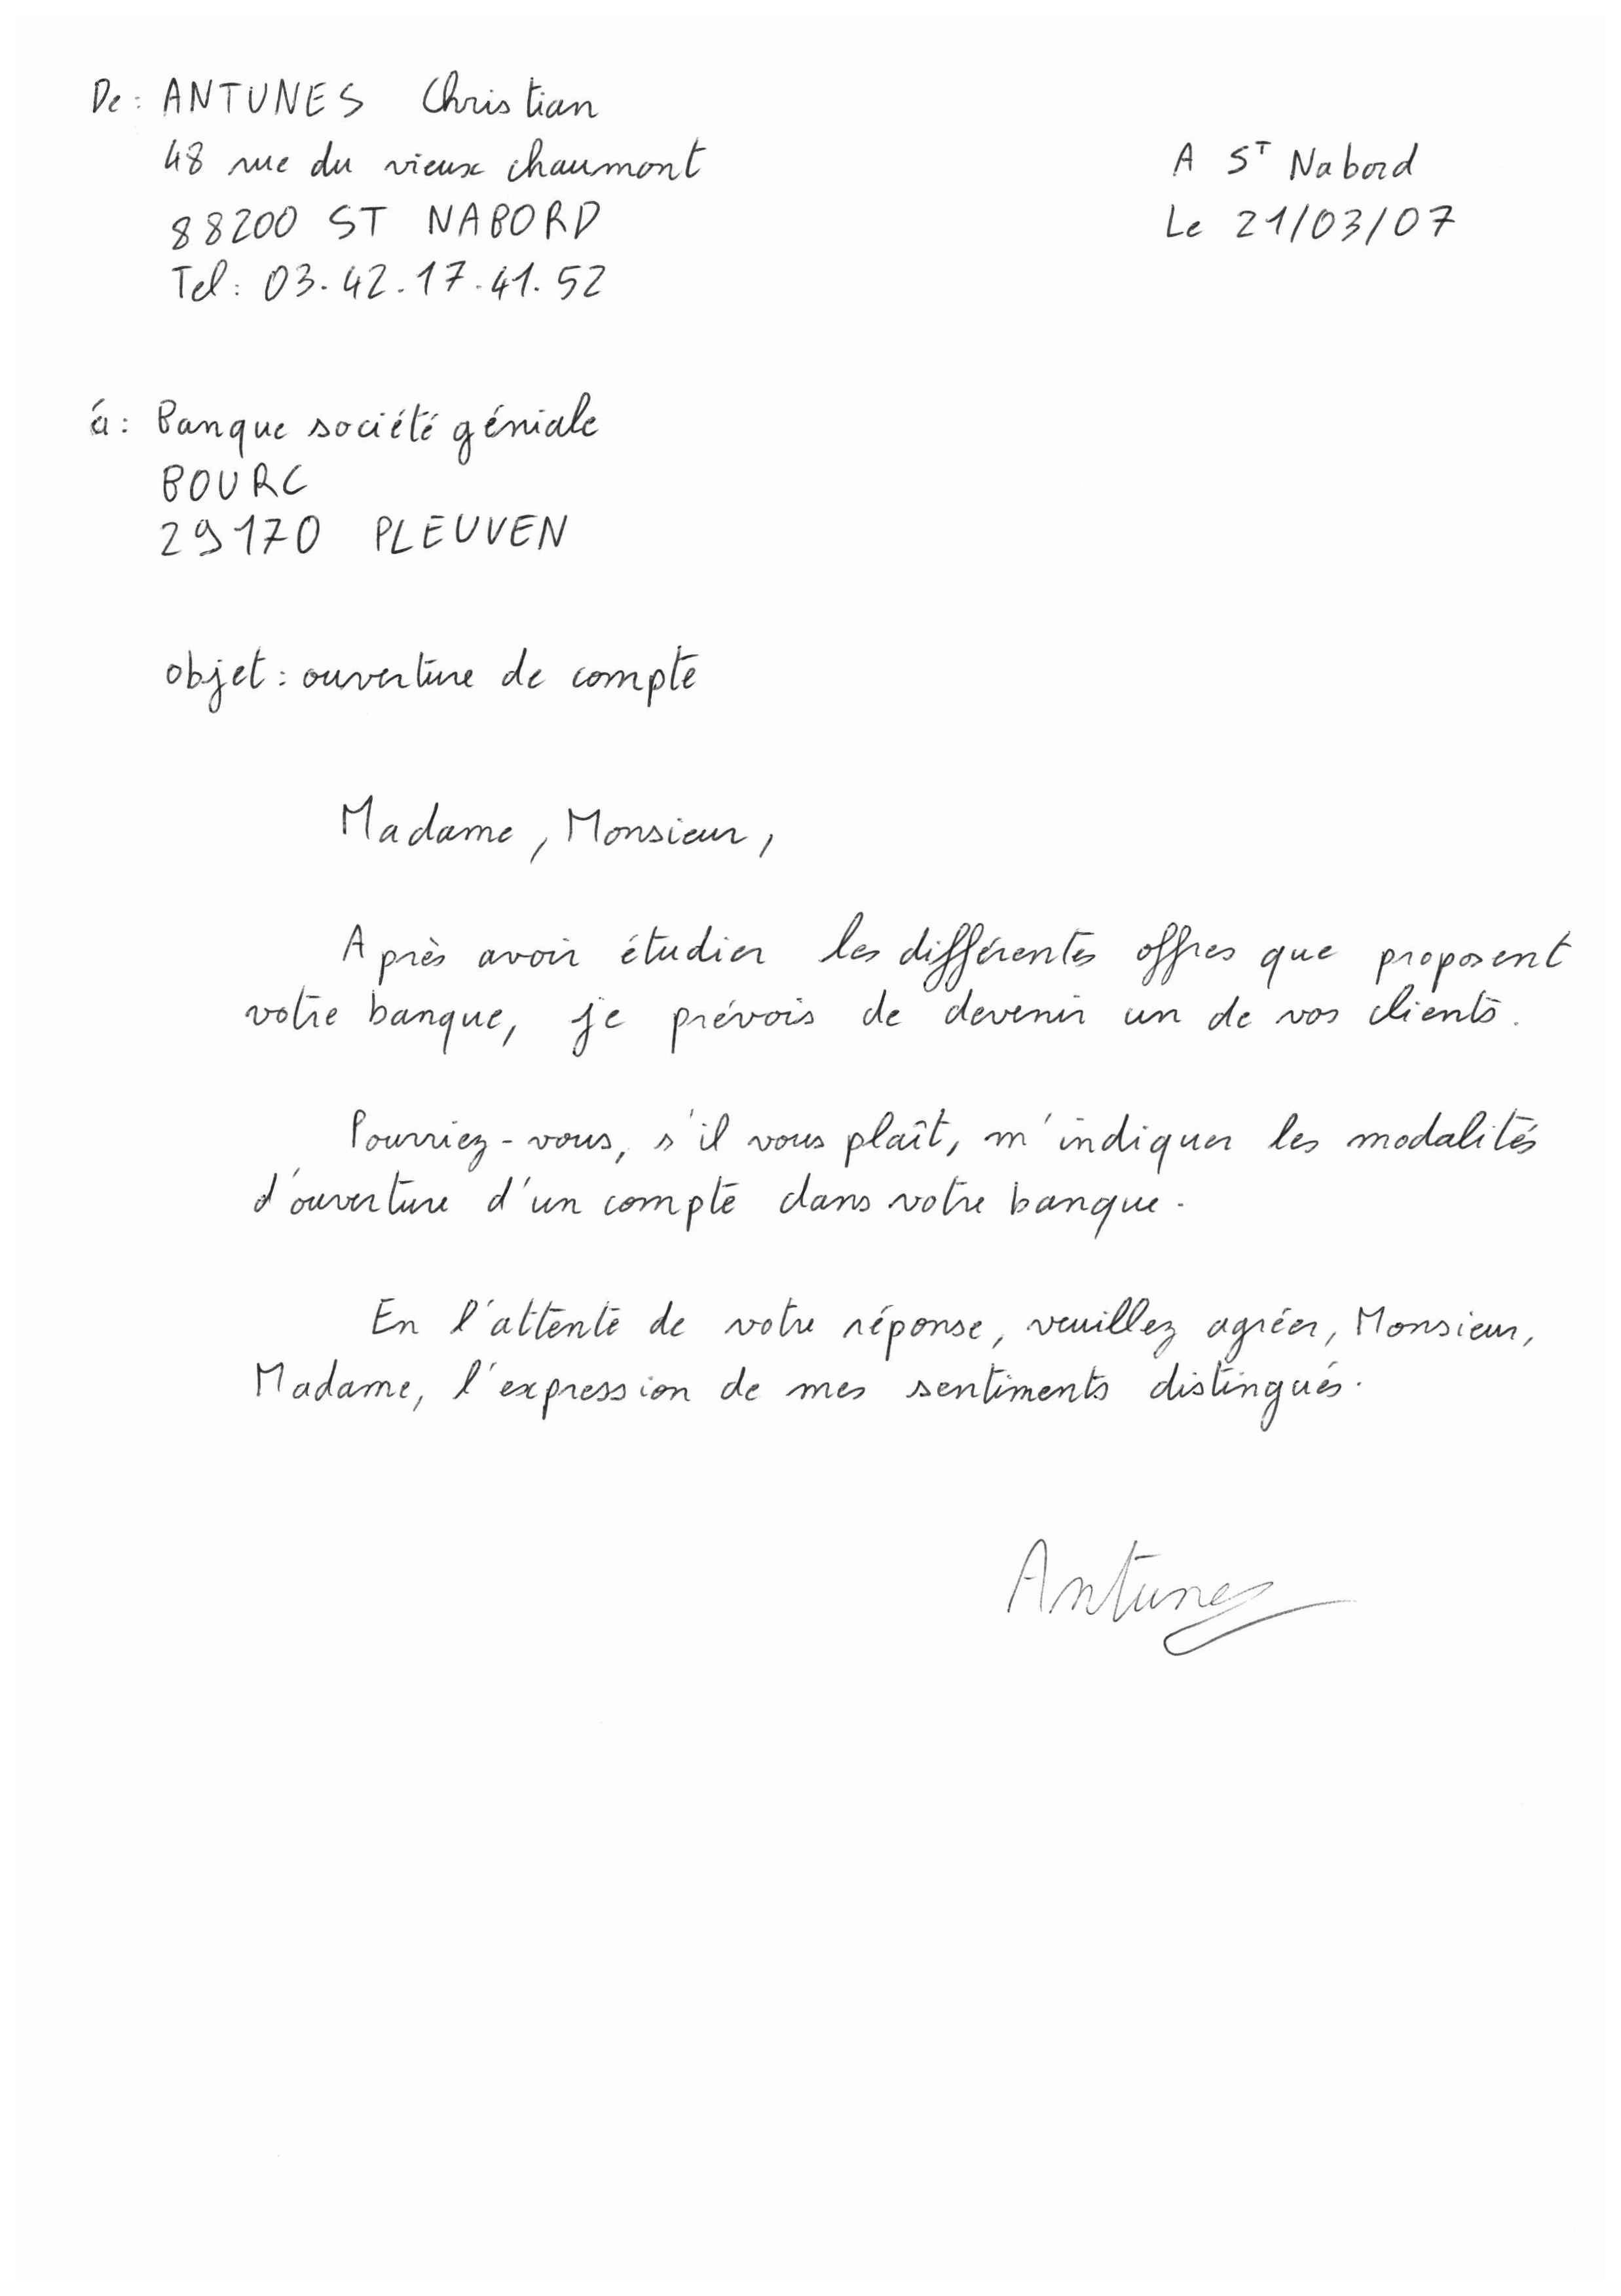 De : ANTUNES Christian
48 rue du vieux chaumont
88200 ST NABORD
Tel : 03.42.17.41.52
A ST Nabord
Le 21/03/07
à : Banque société géniale
BOURC
29170 PLEUVEN
objet : ouverture de compte
Madame, Monsieur,
Après avoir étudier les différentes offres que proposent
votre banque, je prévois de devenir un de vos clients.
Pourriez-vous, s'il vous plaît, m'indiquer les modalités
d'ouverture d'un compte dans votre banque.
En l'attente de votre réponse, veuillez agréer, Monsieur,
Madame, l'expression de mes sentiments distingués.
Antunes